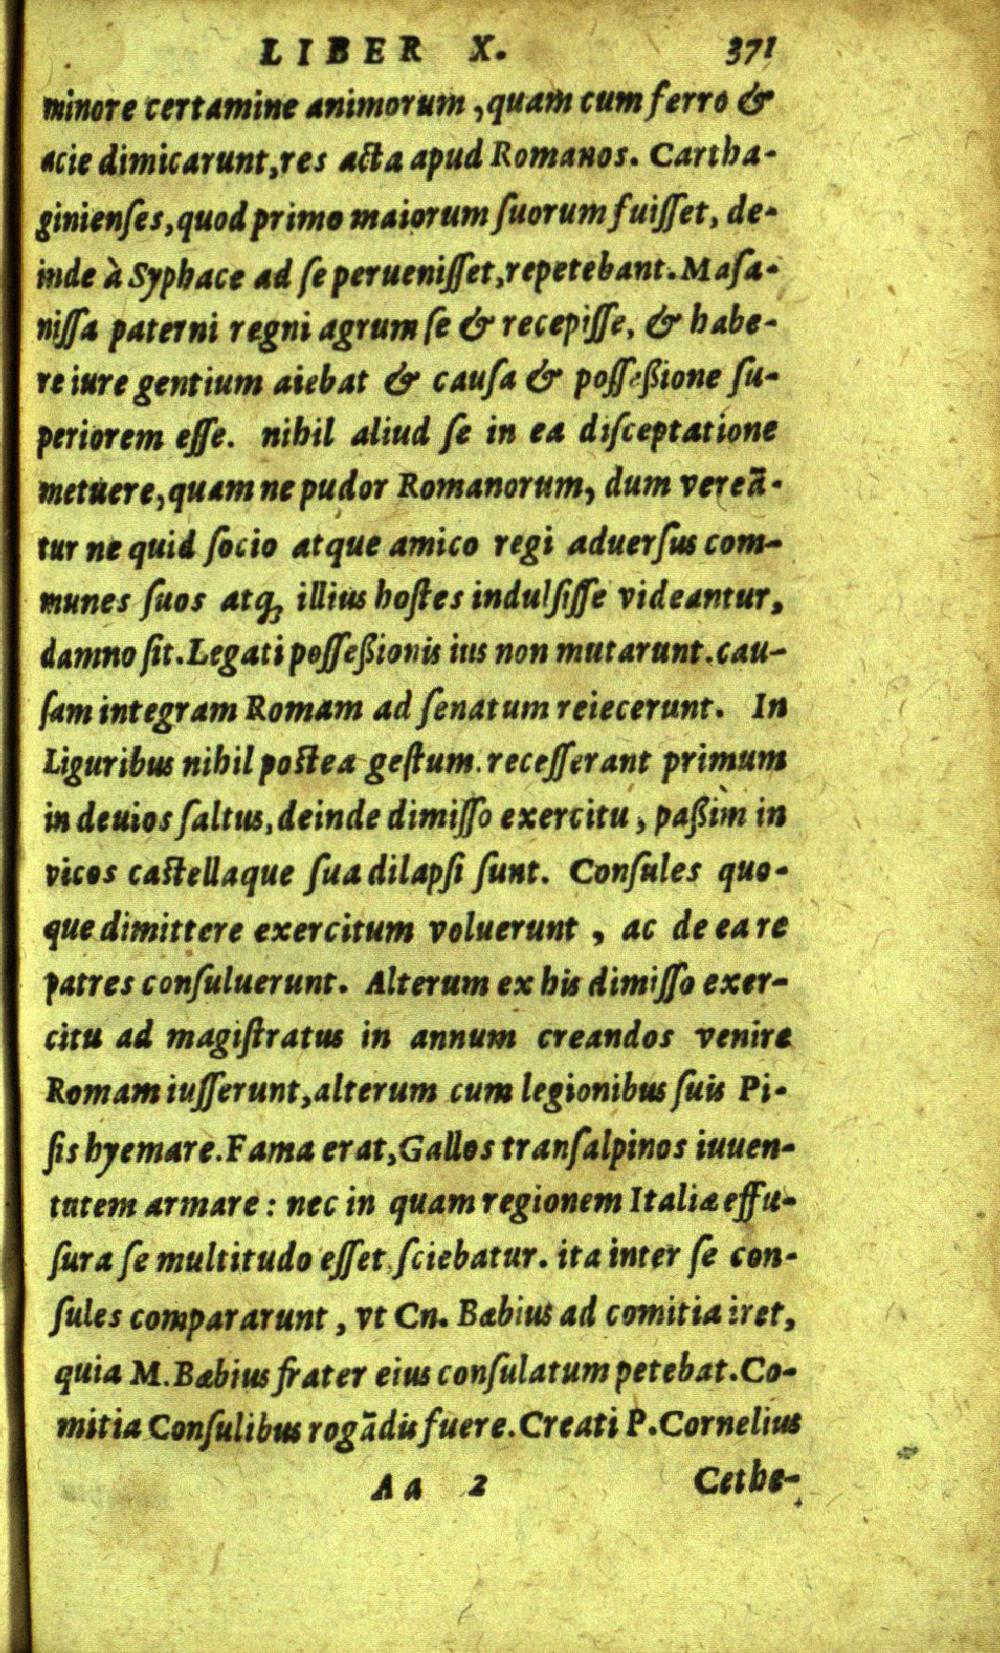 LIBER X. 371
minore certamine animorum, quam cum ferro &
acie dimicarunt, res acta apud Romanos. Cartha-
ginienſes, quod primo maiorum ſuorum fuiſſet, de-
inde à Syphace ad ſe perueniſſet, repetebant. Maſa-
niſſa paterni regni agrum ſe & recepiſſe, & habe-
re iure gentium aiebat & cauſa & poſſeßione ſu-
periorem eſſe. nihil aliud ſe in ea diſceptatione
metuere, quam ne pudor Romanorum, dum vereā-
tur ne quid ſocio atque amico regi aduerſus com-
munes ſuos atq; illius hoſtes indulſiſſe videantur,
damno ſit. Legati poſſeßionis ius non mutarunt. cau-
ſam integram Romam ad ſenatum reiecerunt. In
Liguribus nihil poſtea geſtum. receſſerant primum
in deuios ſaltus, deinde dimiſſo exercitu, paßim in
vicos caſtellaque ſua dilapſi ſunt. Conſules quo-
que dimittere exercitum voluerunt, ac de ea re
patres conſuluerunt. Alterum ex his dimiſſo exer-
citu ad magiſtratus in annum creandos venire
Romam iuſſerunt, alterum cum legionibus ſuis Pi-
ſis hyemare. Fama erat, Gallos tranſalpinos iuuen-
tutem armare: nec in quam regionem Italiæ effu-
ſura ſe multitudo eſſet ſciebatur. ita inter ſe con-
ſules compararunt, vt Cn. Bæbius ad comitia iret,
quia M. Bæbius frater eius conſulatum petebat. Co-
mitia Conſulibus rogādis fuere. Creati P. Cornelius
Aa 2 Cethe-